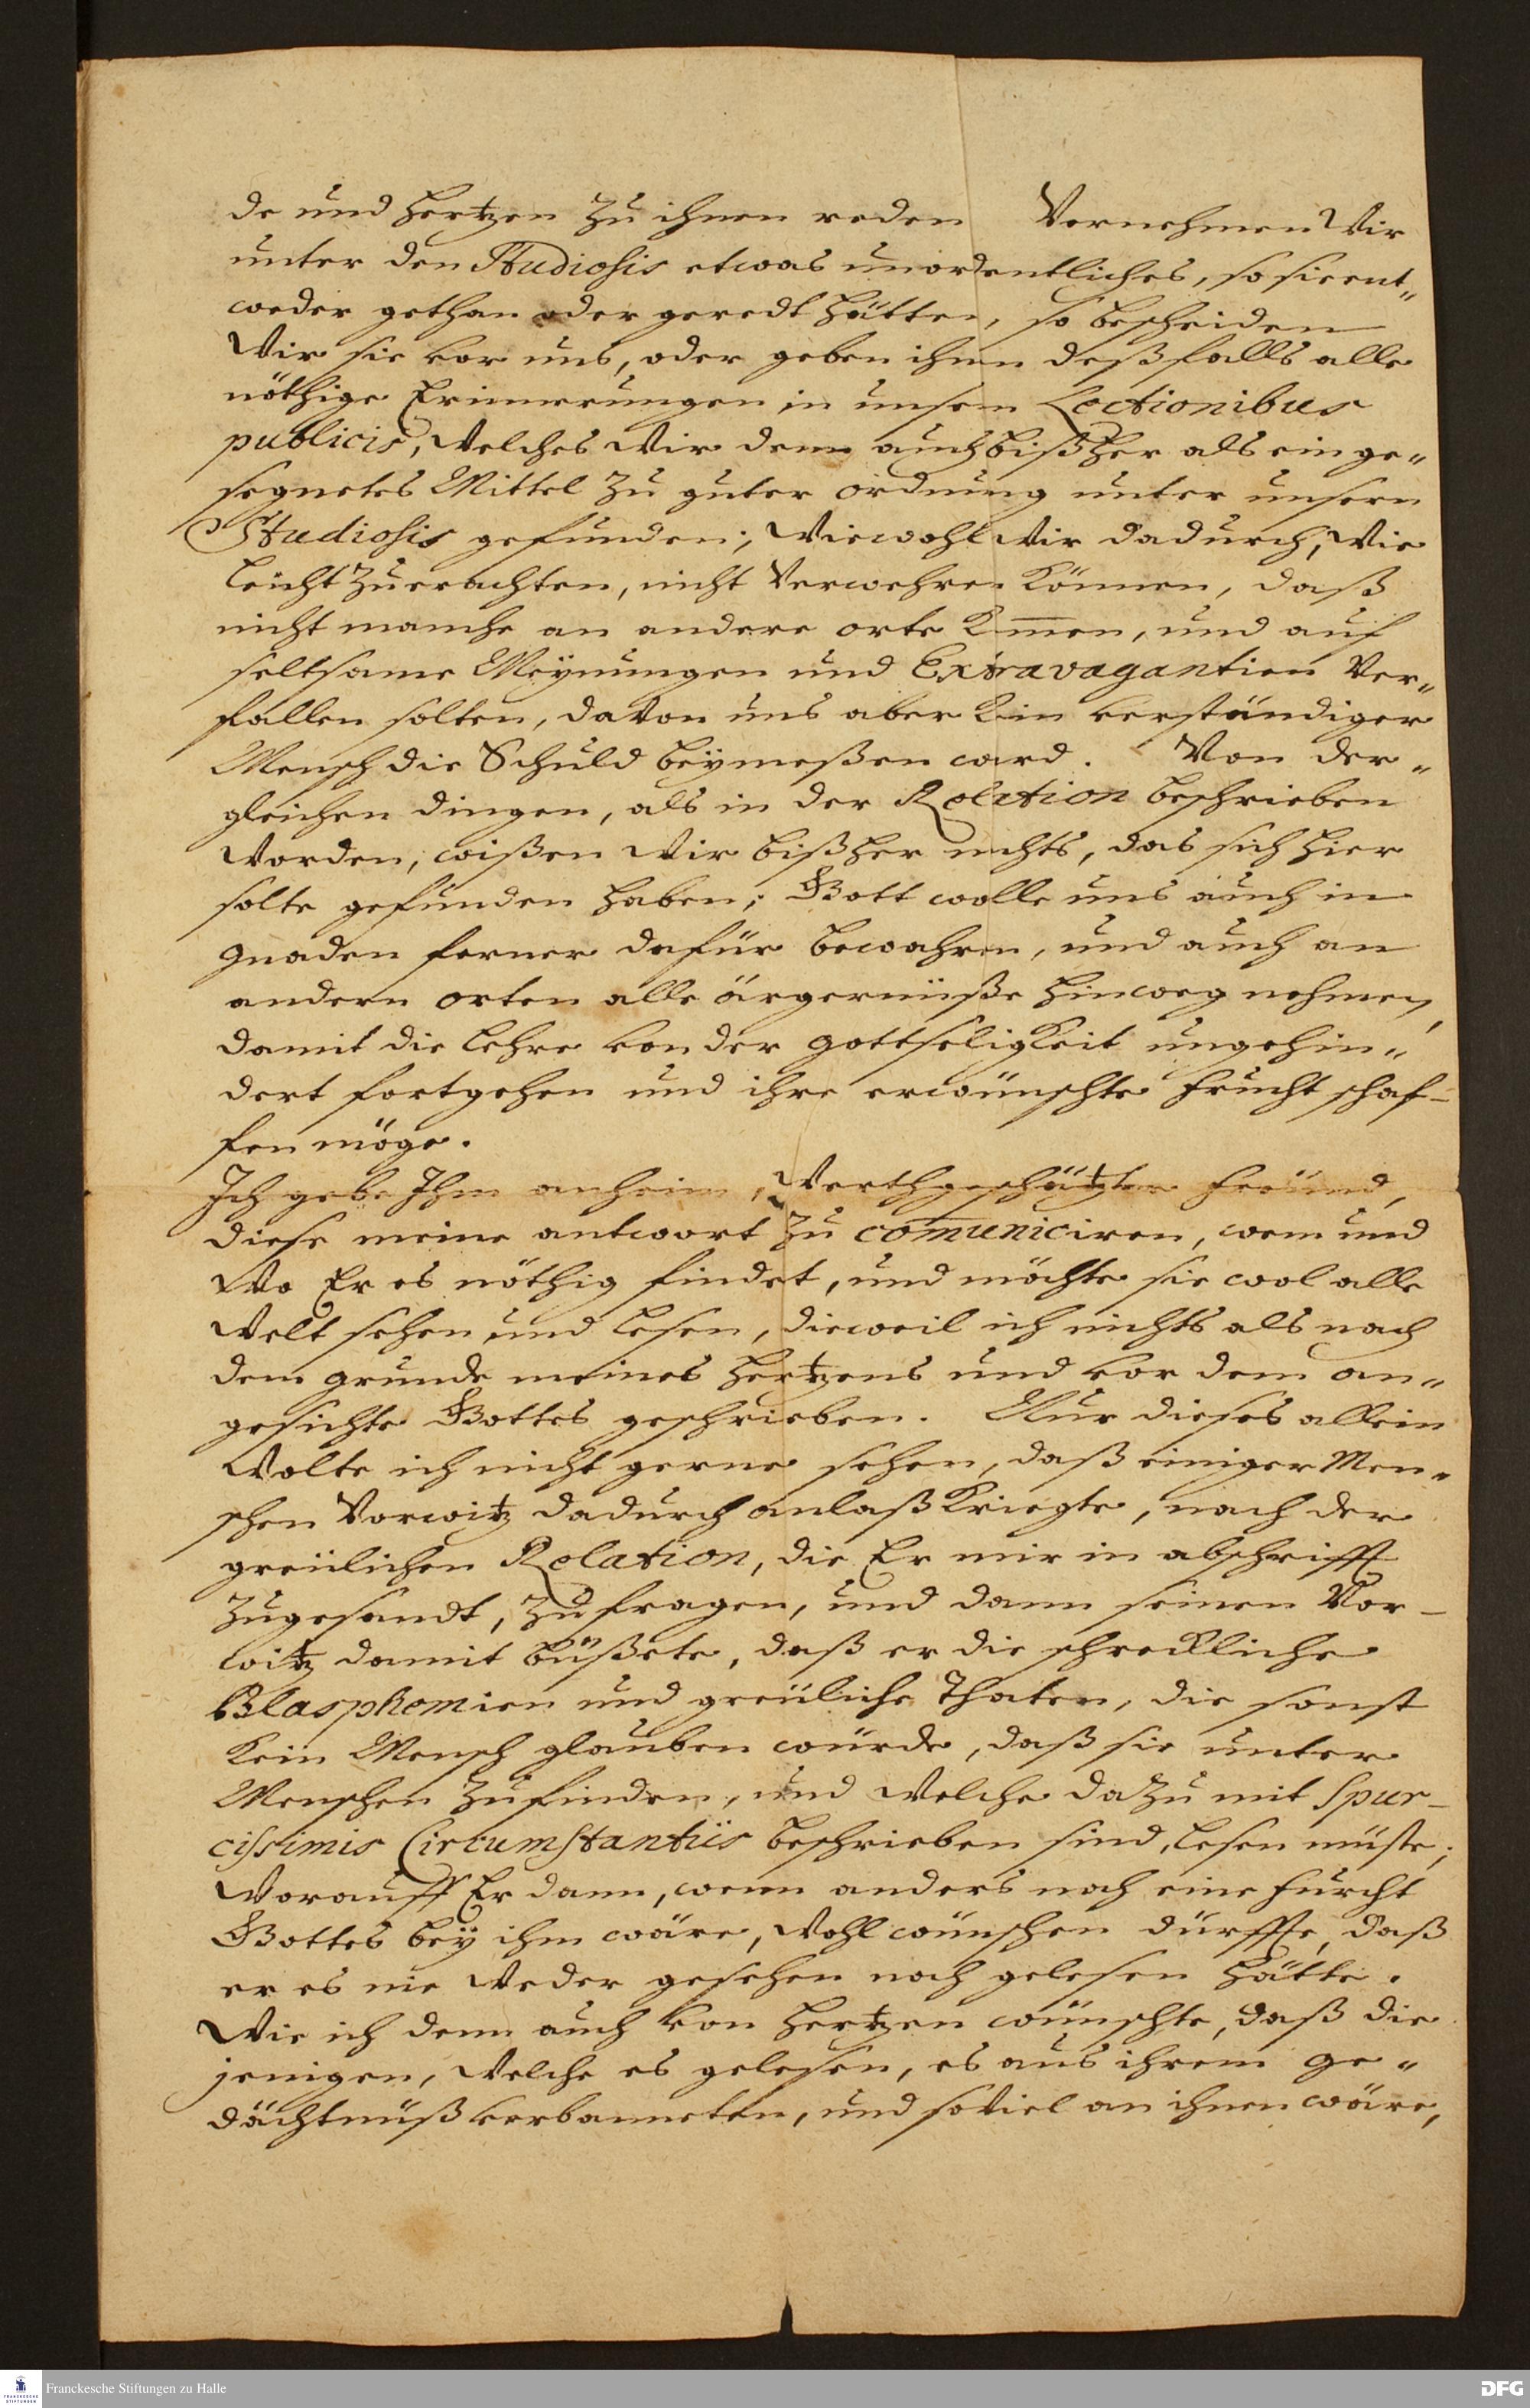 de und Hertzen zu ihnen reden Vernehmen Wir
unter den Studiosis etwas unordentliches, so sie ent„
weder gethan oder geredt hätten, so bescheiden
Wir sie vor uns, oder geben ihnen deßfalls alle
nöthige Erinnerungen in unsern Lectionibus
publicis, Welches Wir denn auch bißher als ein ge„
segnetes Mittel zu guter ordnung unter unsern
Studiosis gefunden; Wiewohl Wir dadurch, Wie
leicht zuerachten, nicht Verwehren können, daß
nicht manche an andere orte kommen, und auf
seltsame Meynungen und Extravagantien Ver„
fallen solten, davon uns aber kein verständiger
Mensch die Schuld beymeßen ward. Von der„
gleichen dingen, als in der Relation beschrieben
Worden, wißen Wir bißher nichts, das sich hier
solte gefunden haben; Gott wolle uns auch in
gnaden ferner dafür bewahren, und auch an
andern orten alle ärgernüße hinweg nehmen,
damit die lehre von der gottseligkeit ungehin„
dert fortgehen und ihre erwünschte frucht schaf-
fen möge.
Ich gebe Ihm anheim, Werthgeschätzter freund,
diese meine antwort zu comuniciren, wem und
Wo Er es nöthig findet, und möchte sie wol alle
Welt sehen und lesen, dieweil ich nichts als nach
dem grunde meines Hertzens und vor dem an„
gesichte Gottes geschrieben. Nur dieses allein
Wolte ich nicht gerne sehen, daß einiger Men„
schen Vorwitz dadurch anlaß kriegte, nach der
greülichen Relation, die Er mir in abschrifft
zugesandt, zu fragen, und dann seinen Vor-
witz damit büßete, daß er die schreckliche
Blasphemien und greüliche Thaten, die sonst
kein Mensch glauben würde, daß sie unter
Menschen zu finden, und Welche dazu mit spur-
cissimis Circumstantiis beschrieben sind, lesen müste;
Worauff Er dann, wenn anders noch eine furcht
Gottes bey ihm wäre, Wohl wünschen dürffte, daß
er es nie Weder gesehen noch gelesen hätte.
Wie ich denn auch von Hertzen wünschte, daß die
jenigen, Welche es gelesen, es aus ihrem ge„
dächtnüß verbanneten, und soviel an ihnen wäre,
Franckesche Stiftungen zu Halle
DFG